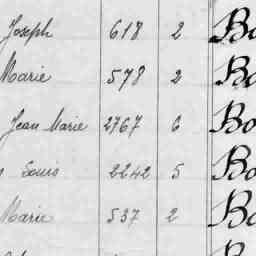 Joseph 618 2 Bo
Marie 578 2 Bo
Jean Marie 2767 6 Bo
Louis 2242 5 Bo
Marie 537 2 Bo